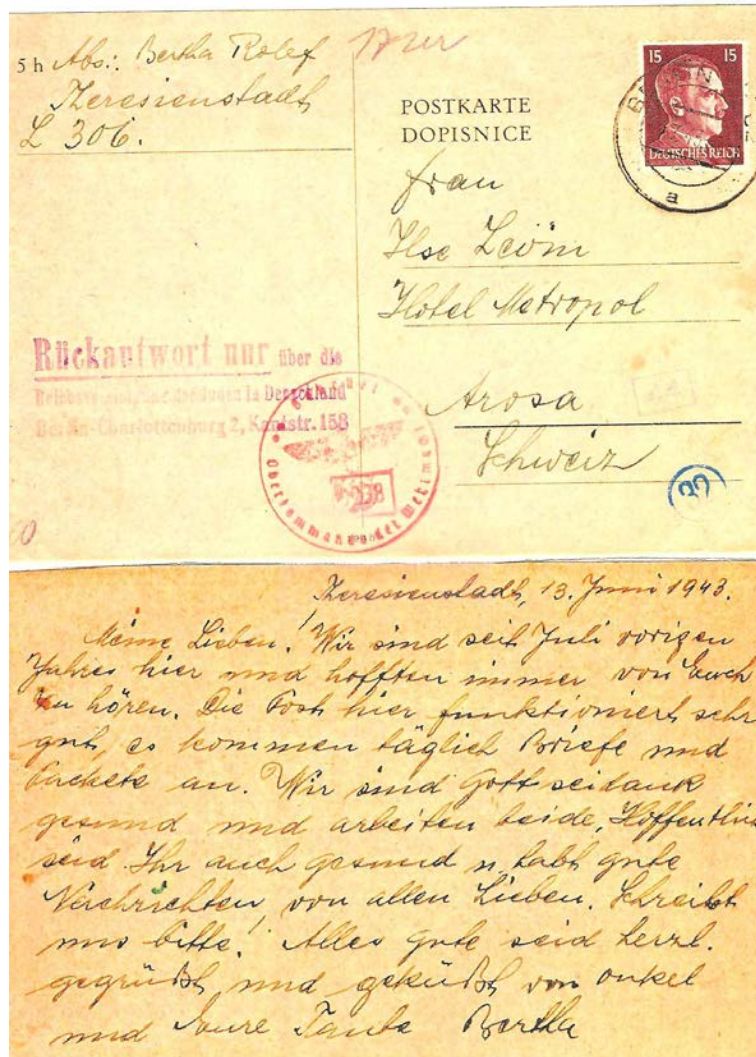 5 h Abs: Bertha Rolef
Theresienstadt
L 306.
POSTKARTE
DOPISNICE
15 15
DEUTSCHES REICH
a
Frau
Ilse
Hotel Metropol
Arosa
Schweiz
Rückantwort nur über die
in Deutschland
Berlin-Charlottenburg 2, Kantstr. 158
Oberkommando der Wehrmacht
32
Theresienstadt, 13. Juni 1943.
Meine Lieben! Wir sind seit Juli vorigen
Jahres hier und hofften immer von Euch
zu hören. Die Post hier funktioniert sehr
gut, es kommen täglich Briefe und
Packete an. Wir sind Gott seidank
gesund und arbeiten beide, Hoffentlich
seid Ihr auch gesund u. habt gute
Nachrichten von allen Lieben. Schreibt
uns bitte! Alles gute seid herzl.
gegrüßt und geküßt von onkel
und Eure Tante Bertha